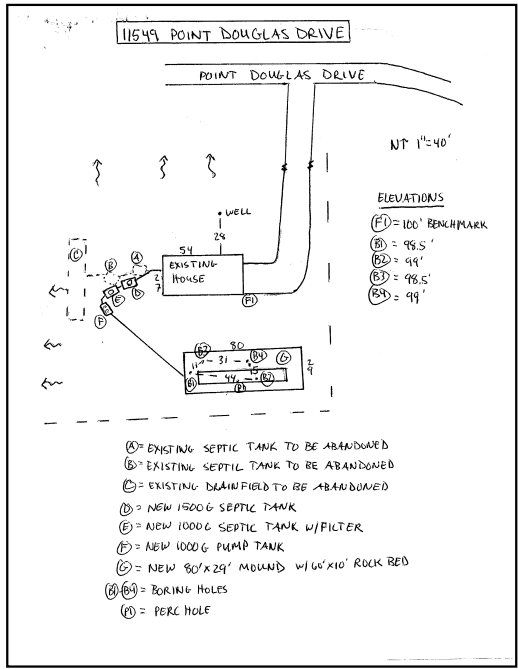 11549 POINT DOUGLAS DRIVE
POINT DOUGLAS DRIVE
N↑ 1"=40'
ELEVATIONS
F1 = 100' BENCHMARK
B1 = 98.5'
B2 = 99'
B3 = 98.5'
B4 = 99'
WELL
28
54
EXISTING
HOUSE
27
F1
C
B
A
D
E
F
80
B3
31
B4
G
29
11
15
B1
44
B2
P1
A = EXISTING SEPTIC TANK TO BE ABANDONED
B = EXISTING SEPTIC TANK TO BE ABANDONED
C = EXISTING DRAINFIELD TO BE ABANDONED
D = NEW 1500G SEPTIC TANK
E = NEW 1000G SEPTIC TANK W/FILTER
F = NEW 1000G PUMP TANK
G = NEW 80'X29' MOUND W/ 60'X10' ROCK BED
B1-B4 = BORING HOLES
P1 = PERC HOLE